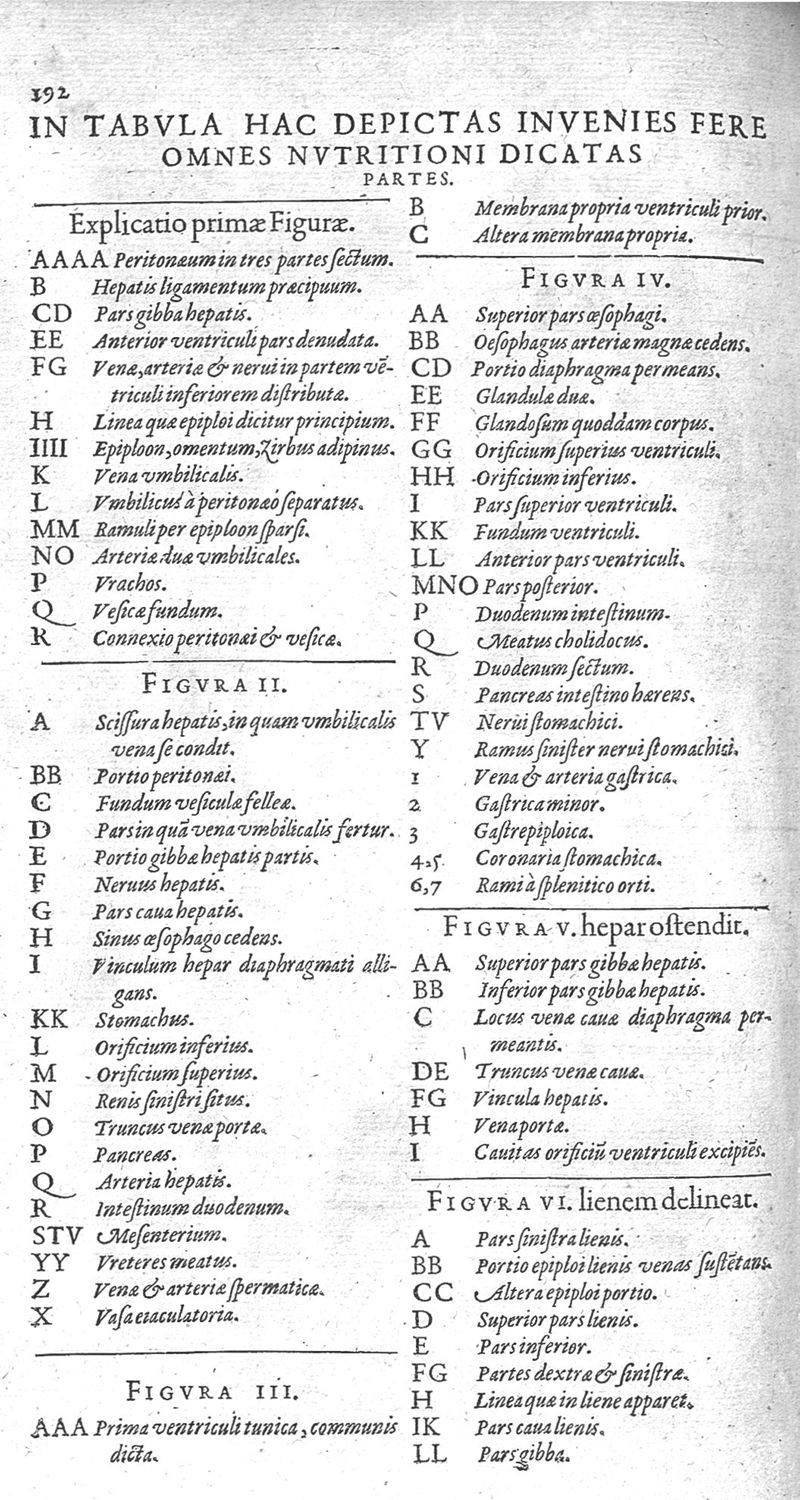 192
IN TABVLA HAC DEPICTAS INVENIES FERE
OMNES NVTRITIONI DICATAS
PARTES.
Explicatio primæ Figuræ.
AAAA Peritonæum in tres partes ſectum.
B Hepatis ligamentum præcipuum.
CD Pars gibba hepatis.
EE Anterior ventriculi pars denudata.
FG Venæ, arteriæ & nerui in partem vē-
triculi inferiorem diſtributæ.
H Linea quæ epiploi dicitur principium.
IIII Epiploon, omentum, Zirbus adipinus.
K Vena vmbilicalis.
L Vmbilicus à peritonæo ſeparatus.
MM Ramuli per epiploon ſparſi.
NO Arteriæ duæ vmbilicales.
P Vrachos.
Q Veſicæ fundum.
R Connexio peritonæi & veſicæ.
FIGVRA II.
A Sciſſura hepatis, in quam vmbilicalis
vena ſe condit.
BB Portio peritonæi.
C Fundum veſiculæ felleæ.
D Pars in quā vena vmbilicalis fertur.
E Portio gibbæ hepatis partis.
F Neruus hepatis.
G Pars caua hepatis.
H Sinus œſophago cedens.
I Vinculum hepar diaphragmati alli-
gans.
KK Stomachus.
L Orificium inferius.
M Orificium ſuperius.
N Renis ſiniſtri ſitus.
O Truncus venæ portæ.
P Pancreas.
Q Arteria hepatis.
R Inteſtinum duodenum.
STV Meſenterium.
YY Vreteres meatus.
Z Venæ & arteriæ ſpermaticæ.
X Vaſa eiaculatoria.
FIGVRA III.
AAA Prima ventriculi tunica, communis
dicta.
B Membrana propria ventriculi prior.
C Altera membrana propria.
FIGVRA IV.
AA Superior pars œſophagi.
BB Oeſophagus arteriæ magnæ cedens.
CD Portio diaphragma permeans.
EE Glandulæ duæ.
FF Glandoſum quoddam corpus.
GG Orificium ſuperius ventriculi.
HH Orificium inferius.
I Pars ſuperior ventriculi.
KK Fundum ventriculi.
LL Anterior pars ventriculi.
MNO Pars poſterior.
P Duodenum inteſtinum.
Q Meatus cholidocus.
R Duodenum ſectum.
S Pancreas inteſtino hærens.
TV Nerui ſtomachici.
Y Ramus ſiniſter nerui ſtomachici.
1 Vena & arteria gaſtrica.
2 Gaſtrica minor.
3 Gaſtrepiploica.
4,5. Coronaria ſtomachica.
6,7 Rami à ſplenitico orti.
FIGVRA V. hepar oſtendit.
AA Superior pars gibbæ hepatis.
BB Inferior pars gibbæ hepatis.
C Locus venæ cauæ diaphragma per-
meantis.
DE Truncus venæ cauæ.
FG Vincula hepatis.
H Vena portæ.
I Cauitas orificiū ventriculi excipiēs.
FIGVRA VI. lienem delineat.
A Pars ſiniſtra lienis.
BB Portio epiploi lienis venas ſuſtētans.
CC Altera epiploi portio.
D Superior pars lienis.
E Pars inferior.
FG Partes dextræ & ſiniſtræ.
H Linea quæ in liene apparet.
IK Pars caua lienis.
LL Pars gibba.